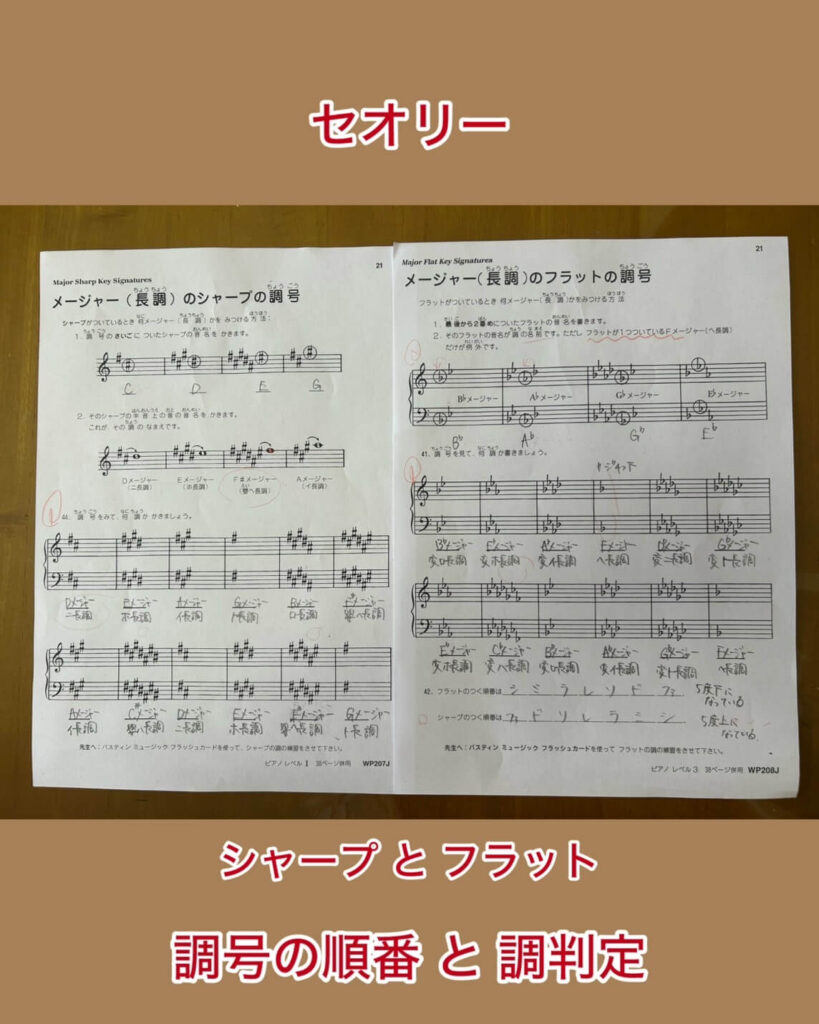 セオリー
21
Major Sharp Key Signatures
メージャー(長調)のシャープの調号
シャープがついているとき 何メージャー(長調)かを みつける方法:
1. 調号のさいごに ついたシャープの音名を かきます。
C D E G
2. そのシャープの半音上の音の音名を かきます。
これが、その調の なまえです。
Dメージャー Eメージャー F#メージャー Aメージャー
(ニ長調) (ホ長調) (嬰ヘ長調) (イ長調)
44. 調号をみて、何調か かきましょう。
Dメージャー Eメージャー Aメージャー Gメージャー Bメージャー F#メージャー
ニ長調 ホ長調 イ長調 ト長調 ロ長調 嬰ヘ長調
Aメージャー C#メージャー Dメージャー Eメージャー F#メージャー Gメージャー
イ長調 ニ長調 ホ長調 嬰ヘ長調 ト長調
先生へ:バスティン ミュージック フラッシュカードを使って、シャープの調の練習をさせて下さい。
ピアノ レベル 38ページ併用 WP207J
21
Major Flat Key Signatures
メージャー(長調)のフラットの調号
フラットがついているとき 何メージャー(長調)かをみつける方法
1. 最後から2番めについたフラットの音名を書きます。
2. そのフラットの音名が調の名前です。ただし フラットが1つついているFメージャー(ヘ長調)
だけが例外です。
B♭メージャー A♭メージャー G♭メージャー E♭メージャー
B♭ A♭ G♭ E♭
41. 調号を見て、何調か書きましょう。
B♭メージャー E♭メージャー A♭メージャー Fメージャー D♭メージャー G♭メージャー
変ロ長調 変ホ長調 変イ長調 ヘ長調 変ニ長調 変ト長調
E♭メージャー C♭メージャー B♭メージャー A♭メージャー G♭メージャー Fメージャー
変ホ長調 変ハ長調 変ロ長調 変イ長調 変ト長調 ヘ長調
42. フラットのつく順番は シ ミ ラ レ ソ ド ファ 5度下になっている
シャープのつく順番は ファ ド ソ レ ラ ミ シ 5度上になっている
先生へ:バスティン ミュージック フラッシュカードを使って フラットの調の練習をさせて下さい。
ピアノ レベル3 38ページ併用 WP208J
シャープ と フラット
調号の順番 と 調判定